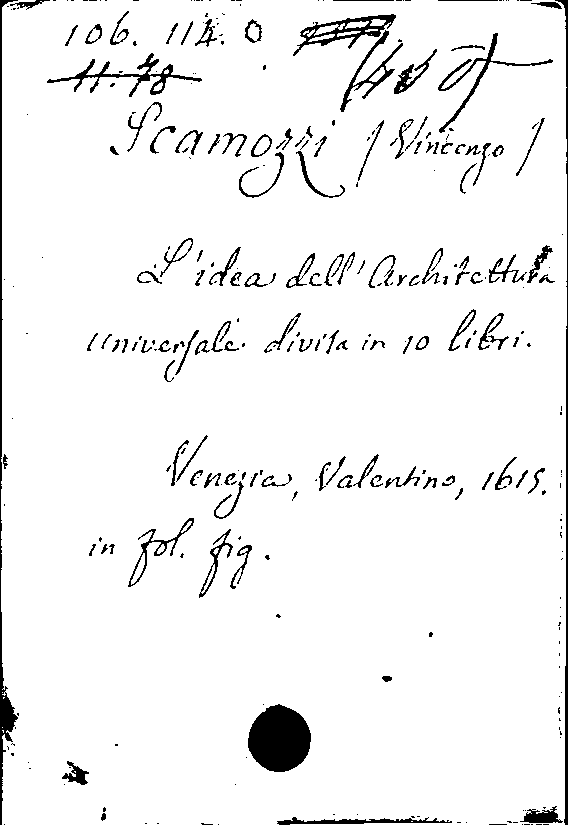 106. 114. O
11. 78
Scamozzi / Vincenzo /
L'idea dell' Architettura
universale divisa in 10 libri.
Venezia, Valentino, 1615.
in fol. fig.